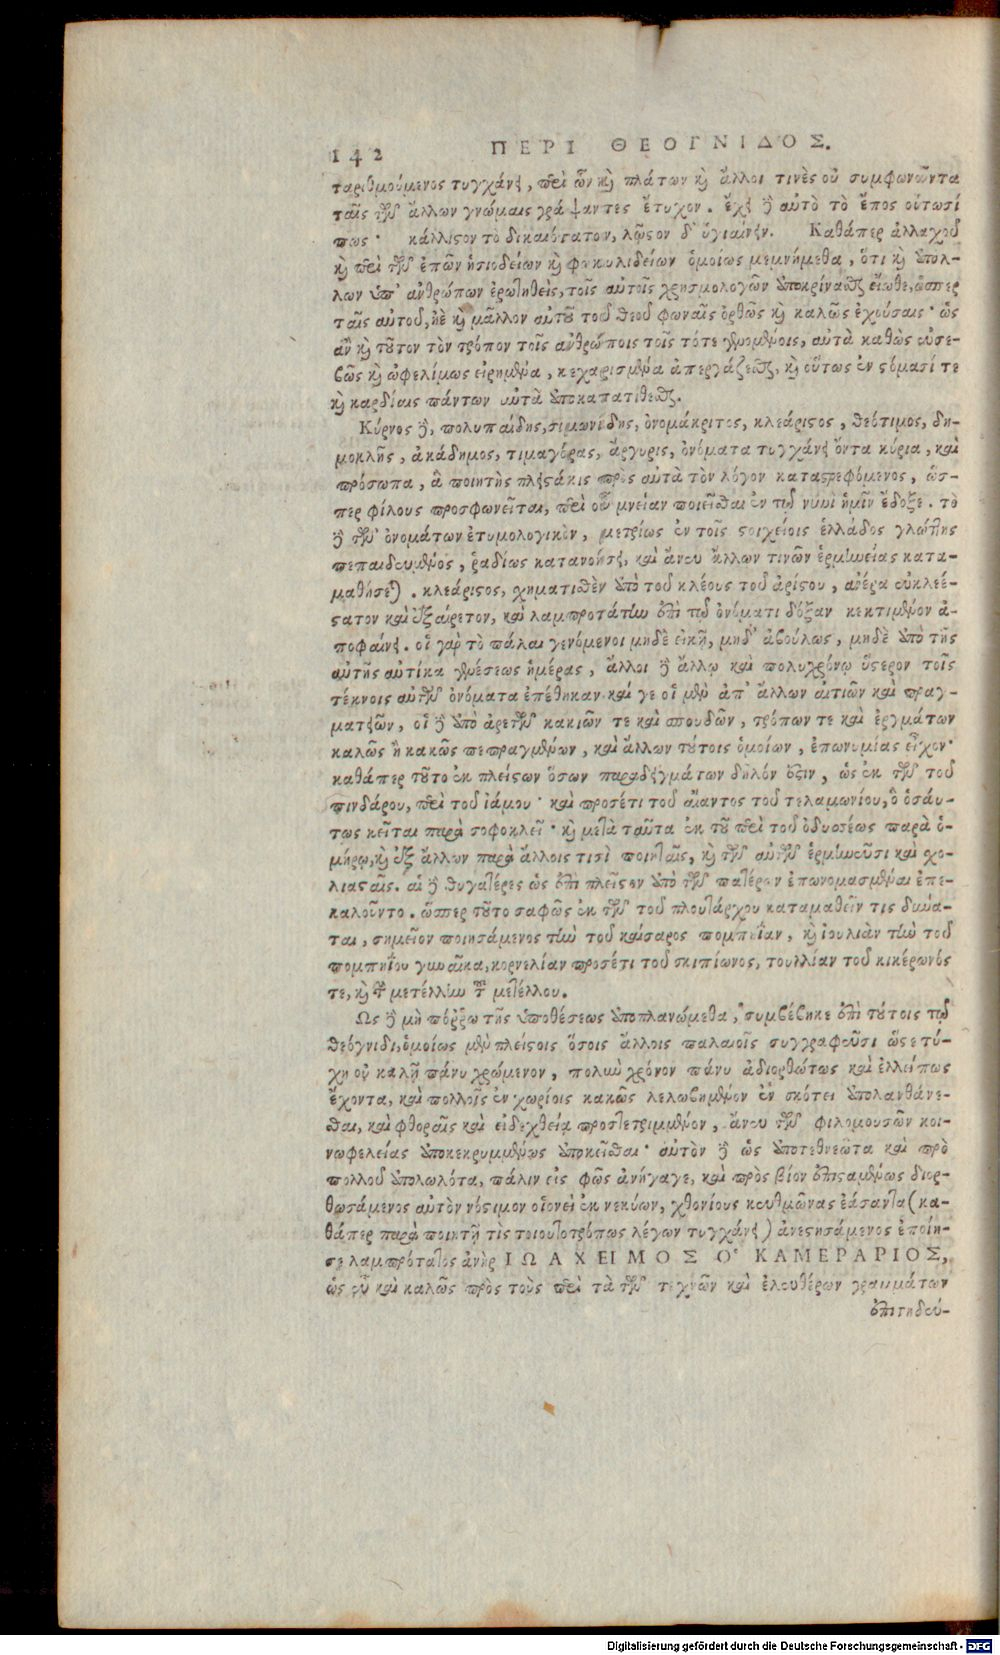 142 ΠΕΡΙ ΘΕΟΓΝΙΔΟΣ.
ταριθμούμενος τυγχάνει, περὶ ὧν καὶ πλάτων καὶ ἄλλοι τινὲς οὐ συμφωνοῦντα
ταῖς τῶν ἄλλων γνώμαις γράψαντες ἔτυχον. ἔχει δὲ αὐτὸ τὸ ἔπος οὑτωσί
πως· κάλλιστον τὸ δικαιότατον, λῷστον δ' ὑγιαίνειν. Καθάπερ ἀλλαχοῦ
καὶ περὶ τῶν ἐπῶν ἡσιοδείων καὶ φωκυλιδείων ὁμοίως μεμνήμεθα, ὅτι καὶ ἀπόλ-
λων ὑπ' ἀνθρώπων ἐρωτηθεὶς, τοῖς αὐτοῖς χρησμολογῶν ἀποκρίνασθαι εἴωθε, ὥσπερ
ταῖς αὐτοῦ, ἠὲ καὶ μᾶλλον αὐτοῦ τοῦ θεοῦ φωναῖς ὀρθῶς καὶ καλῶς ἐχούσαις· ὡς
ἂν καὶ τοῦτον τὸν τρόπον τοῖς ἀνθρώποις τοῖς τότε γενομένοις, αὐτὰ καθὼς εὐσε-
βῶς καὶ ὠφελίμως εἰρημένα, κεχαρισμένα ἀπεργάζεσθαι, καὶ οὕτως ἐν στόμασί τε
καὶ καρδίαις πάντων αὐτὰ ἀποκαπατιθεσθαι.
Κύρνος δὲ, πολυπαίδης, σιμωνίδης, ὀνομάκριτος, κλεάριστος, θεότιμος, δη-
μοκλῆς, ἀκάδημος, τιμαγόρας, ἄργυρις, ὀνόματα τυγχάνει ὄντα κύρια, καὶ
πρόσωπα, ἃ ποιητὴς πλειστάκις πρὸς αὐτὰ τὸν λόγον καταστρεφόμενος, ὥσ-
περ φίλους προσφωνεῖται, περὶ οὗ μνείαν ποιεῖσθαι ἐν τῷ νυνὶ ἡμῖν ἔδοξε. τὸ
δὲ τῶν ὀνομάτων ἐτυμολογικὸν, μετρίως ἐν τοῖς στοιχείοις ἑλλάδος γλώττης
πεπαιδευμένος, ῥαδίως κατανοήσει, καὶ ἄνευ ἄλλων τινῶν ἑρμηνείας κατα-
μαθήσεται. κλεάριστος, χηματισθὲν ἀπὸ τοῦ κλέους τοῦ ἀρίστου, ἀνέρα εὐκλεέ-
στατον καὶ ἐξαίρετον, καὶ λαμπροτάτην ἐπὶ τῷ ὀνόματι δόξαν κεκτημένον ἀ-
ποφαίνει. οἱ γὰρ τὸ πάλαι γενόμενοι μηδὲ εἰκῇ, μηδ' ἀβούλως, μηδὲ ἀπὸ τῆς
αὐτῆς αὐτίκα γενέσεως ἡμέρας, ἄλλοι δὲ ἄλλῳ καὶ πολυχρόνῳ ὕστερον τοῖς
τέκνοις αὐτῶν ὀνόματα ἐπέθηκαν. καί γε οἱ μὲν ἀπ' ἄλλων αἰτιῶν καὶ πραγ-
ματειῶν, οἱ δὲ ἀπὸ ἀρετῶν κακιῶν τε καὶ σπουδῶν, τρόπων τε καὶ ἐργμάτων
καλῶς ἢ κακῶς πεπραγμένων, καὶ ἄλλων τούτοις ὁμοίων, ἐπωνυμίας εἶχον·
καθάπερ τοῦτο ἐκ πλείστων ὅσων παραδειγμάτων δῆλόν ἐστιν, ὡς ἐκ τῶν τοῦ
πινδάρου, περὶ τοῦ ἰάμου· καὶ προσέτι τοῦ αἴαντος τοῦ τελαμωνίου, ὃ ὁσαύ-
τως κεῖται παρὰ σοφοκλεῖ· καὶ μετὰ ταῦτα ἐκ τοῦ περὶ τοῦ ὀδυσσέως παρὰ ὁ-
μήρῳ, καὶ ἐξ ἄλλων παρὰ ἄλλοις τισὶ ποιηταῖς, καὶ τῶν αὐτῶν ἑρμηνεῦσι καὶ σχο-
λιασταῖς. αἱ δὲ θυγατέρες ὡς ἐπὶ πλεῖστον ἀπὸ τῶν πατέρων ἐπωνομασμέναι ἐπε-
καλοῦντο. ὥσπερ τοῦτο σαφῶς ἐκ τῶν τοῦ πλουτάρχου καταμαθεῖν τις δύνα-
ται, σημεῖον ποιησάμενος τὴν τοῦ καίσαρος πομπηΐαν, καὶ ἰουλιὰν τὴν τοῦ
πομπηΐου γυναῖκα, κορνελίαν προσέτι τοῦ σκιπίωνος, τουλλίαν τοῦ κικέρωνός
τε, καὶ τὴν μετέλλην τοῦ μετέλλου.
Ὡς δὲ μὴ πόῤῥω τῆς ὑποθέσεως ἀποπλανώμεθα, συμβέβηκε ἐπὶ τούτοις τῷ
θεόγνιδι, ὁμοίως μὲν πλείστοις ὅσοις ἄλλοις παλαιοῖς συγγραφεῦσι ὥστε τύ-
χῃ οὐ καλῇ πάνυ χρώμενον, πολὺν χρόνον πάνυ ἀδιορθώτως καὶ ἐλλείπως
ἔχοντα, καὶ πολλοῖς ἐν χωρίοις κακῶς λελωβημένον ἐν σκότει ἀπολανθάνε-
σθαι, καὶ φθοραῖς καὶ εἰδεχθείᾳ προστετριμμένον, ἄνευ τῶν φιλομουσῶν κοι-
νωφελείας ἀποκεκρυμμένως ἀποκεῖσθαι· αὐτὸν δὲ ὡς ἀποτεθνεῶτα καὶ πρὸ
πολλοῦ ἀπολωλότα, πάλιν εἰς φῶς ἀνήγαγε, καὶ πρὸς βίον ἐπισταμένως διορ-
θωσάμενος αὐτὸν νόστιμον οἱονεὶ ἐκ νεκύων, χθονίους κευθμῶνας ἐάσαντα (κα-
θάπερ παρὰ ποιητῇ τὶς τοιουτοτρόπως λέγων τυγχάνει) ἀνεστησάμενος ἐποίη-
σε λαμπρότατος ἀνὴρ ΙΩΑΧΕΙΜΟΣ Ὁ ΚΑΜΕΡΑΡΙΟΣ,
ὡς εὖ καὶ καλῶς πρὸς τοὺς περὶ τὰ τῶν τεχνῶν καὶ ἐλευθέρων γραμμάτων
ἐπιτηδεύ-
Digitalisierung gefördert durch die Deutsche Forschungsgemeinschaft - DFG